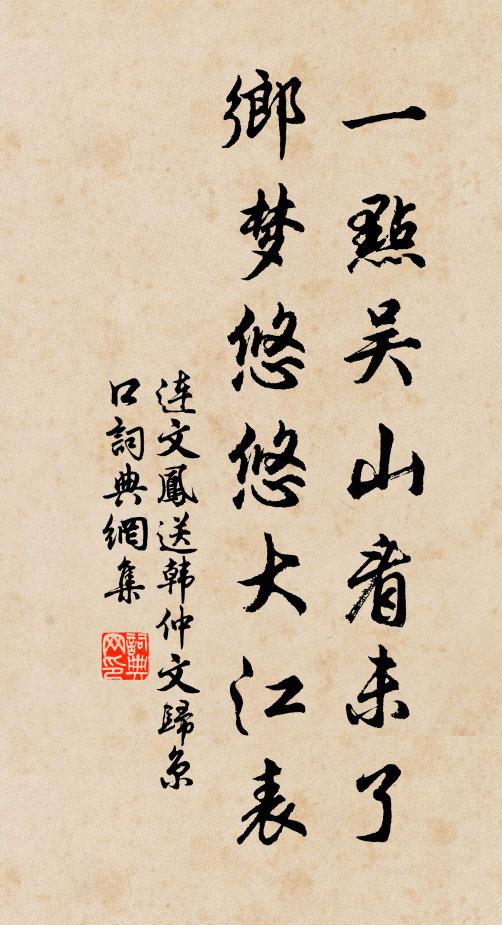 一點吴山看未了
鄉梦悠悠大江表
连文鳳送韩仲文歸京
口詞典網集
詞典
网印